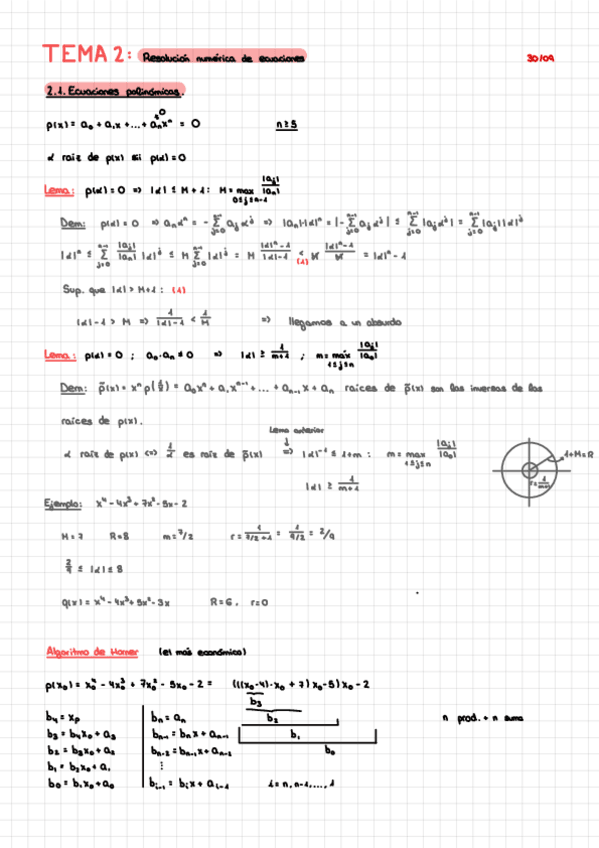 TEMA 2: Resolución numérica de ecuaciones 30/09
2.1. Ecuaciones polinómicas.
p(x) = a₀ + a₁x + ... + aₙxⁿ = 0 n ≥ 5
≠0
α raíz de p(x) si p(α) = 0
Lema: p(α) = 0 => |α| ≤ M + 1: M = max_{0≤j≤n-1} |aⱼ|/|aₙ|
Dem: p(α) = 0 => aₙαⁿ = - Σ_{j=0}^{n-1} aⱼαʲ => |aₙ||α|ⁿ = |-Σ_{j=0}^{n-1} aⱼαʲ| ≤ Σ_{j=0}^{n-1} |aⱼαʲ| = Σ_{j=0}^{n-1} |aⱼ||α|ʲ
|α|ⁿ ≤ Σ_{j=0}^{n-1} |aⱼ|/|aₙ| |α|ʲ ≤ M Σ_{j=0}^{n-1} |α|ʲ = M (|α|ⁿ-1)/(|α|-1) <_{(1)} M (|α|ⁿ-1)/M = |α|ⁿ - 1
Sup. que |α| > M+1: (1)
|α|-1 > M => 1/(|α|-1) < 1/M => llegamos a un absurdo
Lema: p(α) = 0 ; a₀·aₙ ≠ 0 => |α| ≥ 1/(m+1) ; m = máx_{1≤j≤n} |aⱼ|/|a₀|
Dem: p̃(x) = xⁿ p(1/x) = a₀xⁿ + a₁xⁿ⁻¹ + ... + aₙ₋₁x + aₙ raíces de p̃(x) son las inversas de las
raíces de p(x).
Lema anterior
α raíz de p(x) <=> 1/α es raíz de p̃(x) => |α|⁻¹ ≤ 1+m : m = max_{1≤j≤n} |aⱼ|/|a₀|
1+M=R
r=1/(m+1)
|α| ≥ 1/(m+1)
Ejemplo: x⁴ - 4x³ + 7x² - 5x - 2
M = 7 R = 8 m = 7/2 r = 1/(7/2+1) = 1/(9/2) = 2/9
2/9 ≤ |α| ≤ 8
q(x) = x⁴ - 4x³ + 5x² - 3x R = 6, r = 0
Algoritmo de Horner (el más económico)
p(x₀) = x₀⁴ - 4x₀³ + 7x₀² - 5x₀ - 2 = (((x₀-4)·x₀ + 7)x₀-5)x₀ - 2
b₃
b₂
b₁
b₀
n prod. + n suma
b₃ = b₄x₀ + a₃ bₙ₋₁ = bₙx + aₙ₋₁
b₂ = b₃x₀ + a₂ bₙ₋₂ = bₙ₋₁x + aₙ₋₂
b₁ = b₂x₀ + a₁ ⋮
b₀ = b₁x₀ + a₀ bᵢ₋₁ = bᵢx + aᵢ₋₁ i = n, n-1, ..., 1